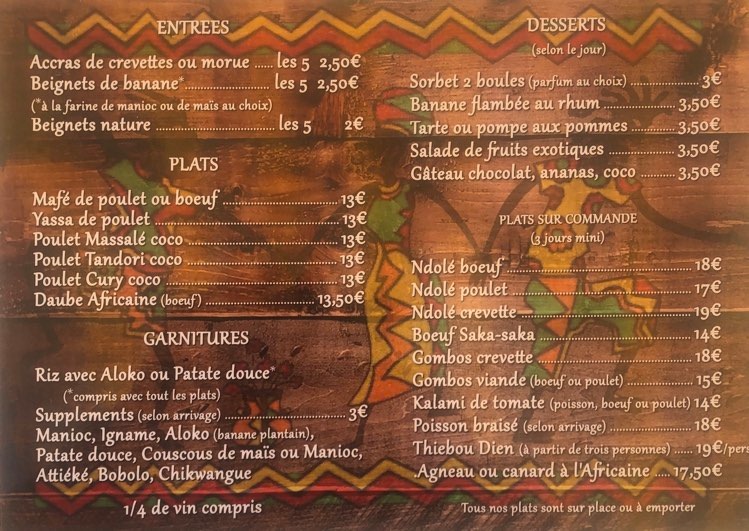 ENTREES
Accras de crevettes ou morue ...... les 5 2,50€
Beignets de banane*...................... les 5 2,50€
(*à la farine de manioc ou de maïs au choix)
Beignets nature ................................ les 5 2€
PLATS
Mafé de poulet ou boeuf ............................... 13€
Yassa de poulet ................................................ 13€
Poulet Massalé coco ........................................ 13€
Poulet Tandori coco ........................................ 13€
Poulet Cury coco .............................................. 13€
Daube Africaine (boeuf) ............................ 13,50€
GARNITURES
Riz avec Aloko ou Patate douce*
(*compris avec tout les plats)
Supplements (selon arrivage) ................................. 3€
Manioc, Igname, Aloko (banane plantain),
Patate douce, Couscous de maïs ou Manioc,
Attiéké, Bobolo, Chikwangue
1/4 de vin compris
DESSERTS
(selon le jour)
Sorbet 2 boules (parfum au choix) ..................... 3€
Banane flambée au rhum ....................... 3,50€
Tarte ou pompe aux pommes ................ 3,50€
Salade de fruits exotiques ...................... 3,50€
Gâteau chocolat, ananas, coco .............. 3,50€
PLATS SUR COMMANDE
(3 jours mini)
Ndolé boeuf ................................................ 18€
Ndolé poulet .............................................. 17€
Ndolé crevette ........................................... 19€
Boeuf Saka-saka ........................................ 14€
Gombos crevette ....................................... 18€
Gombos viande (boeuf ou poulet) ................... 15€
Kalami de tomate (poisson, boeuf ou poulet) 14€
Poisson braisé (selon arrivage) ......................... 18€
Thiebou Dien (à partir de trois personnes) ..... 19€/pers
.Agneau ou canard à l'Africaine ..... 17,50€
Tous nos plats sont sur place ou à emporter